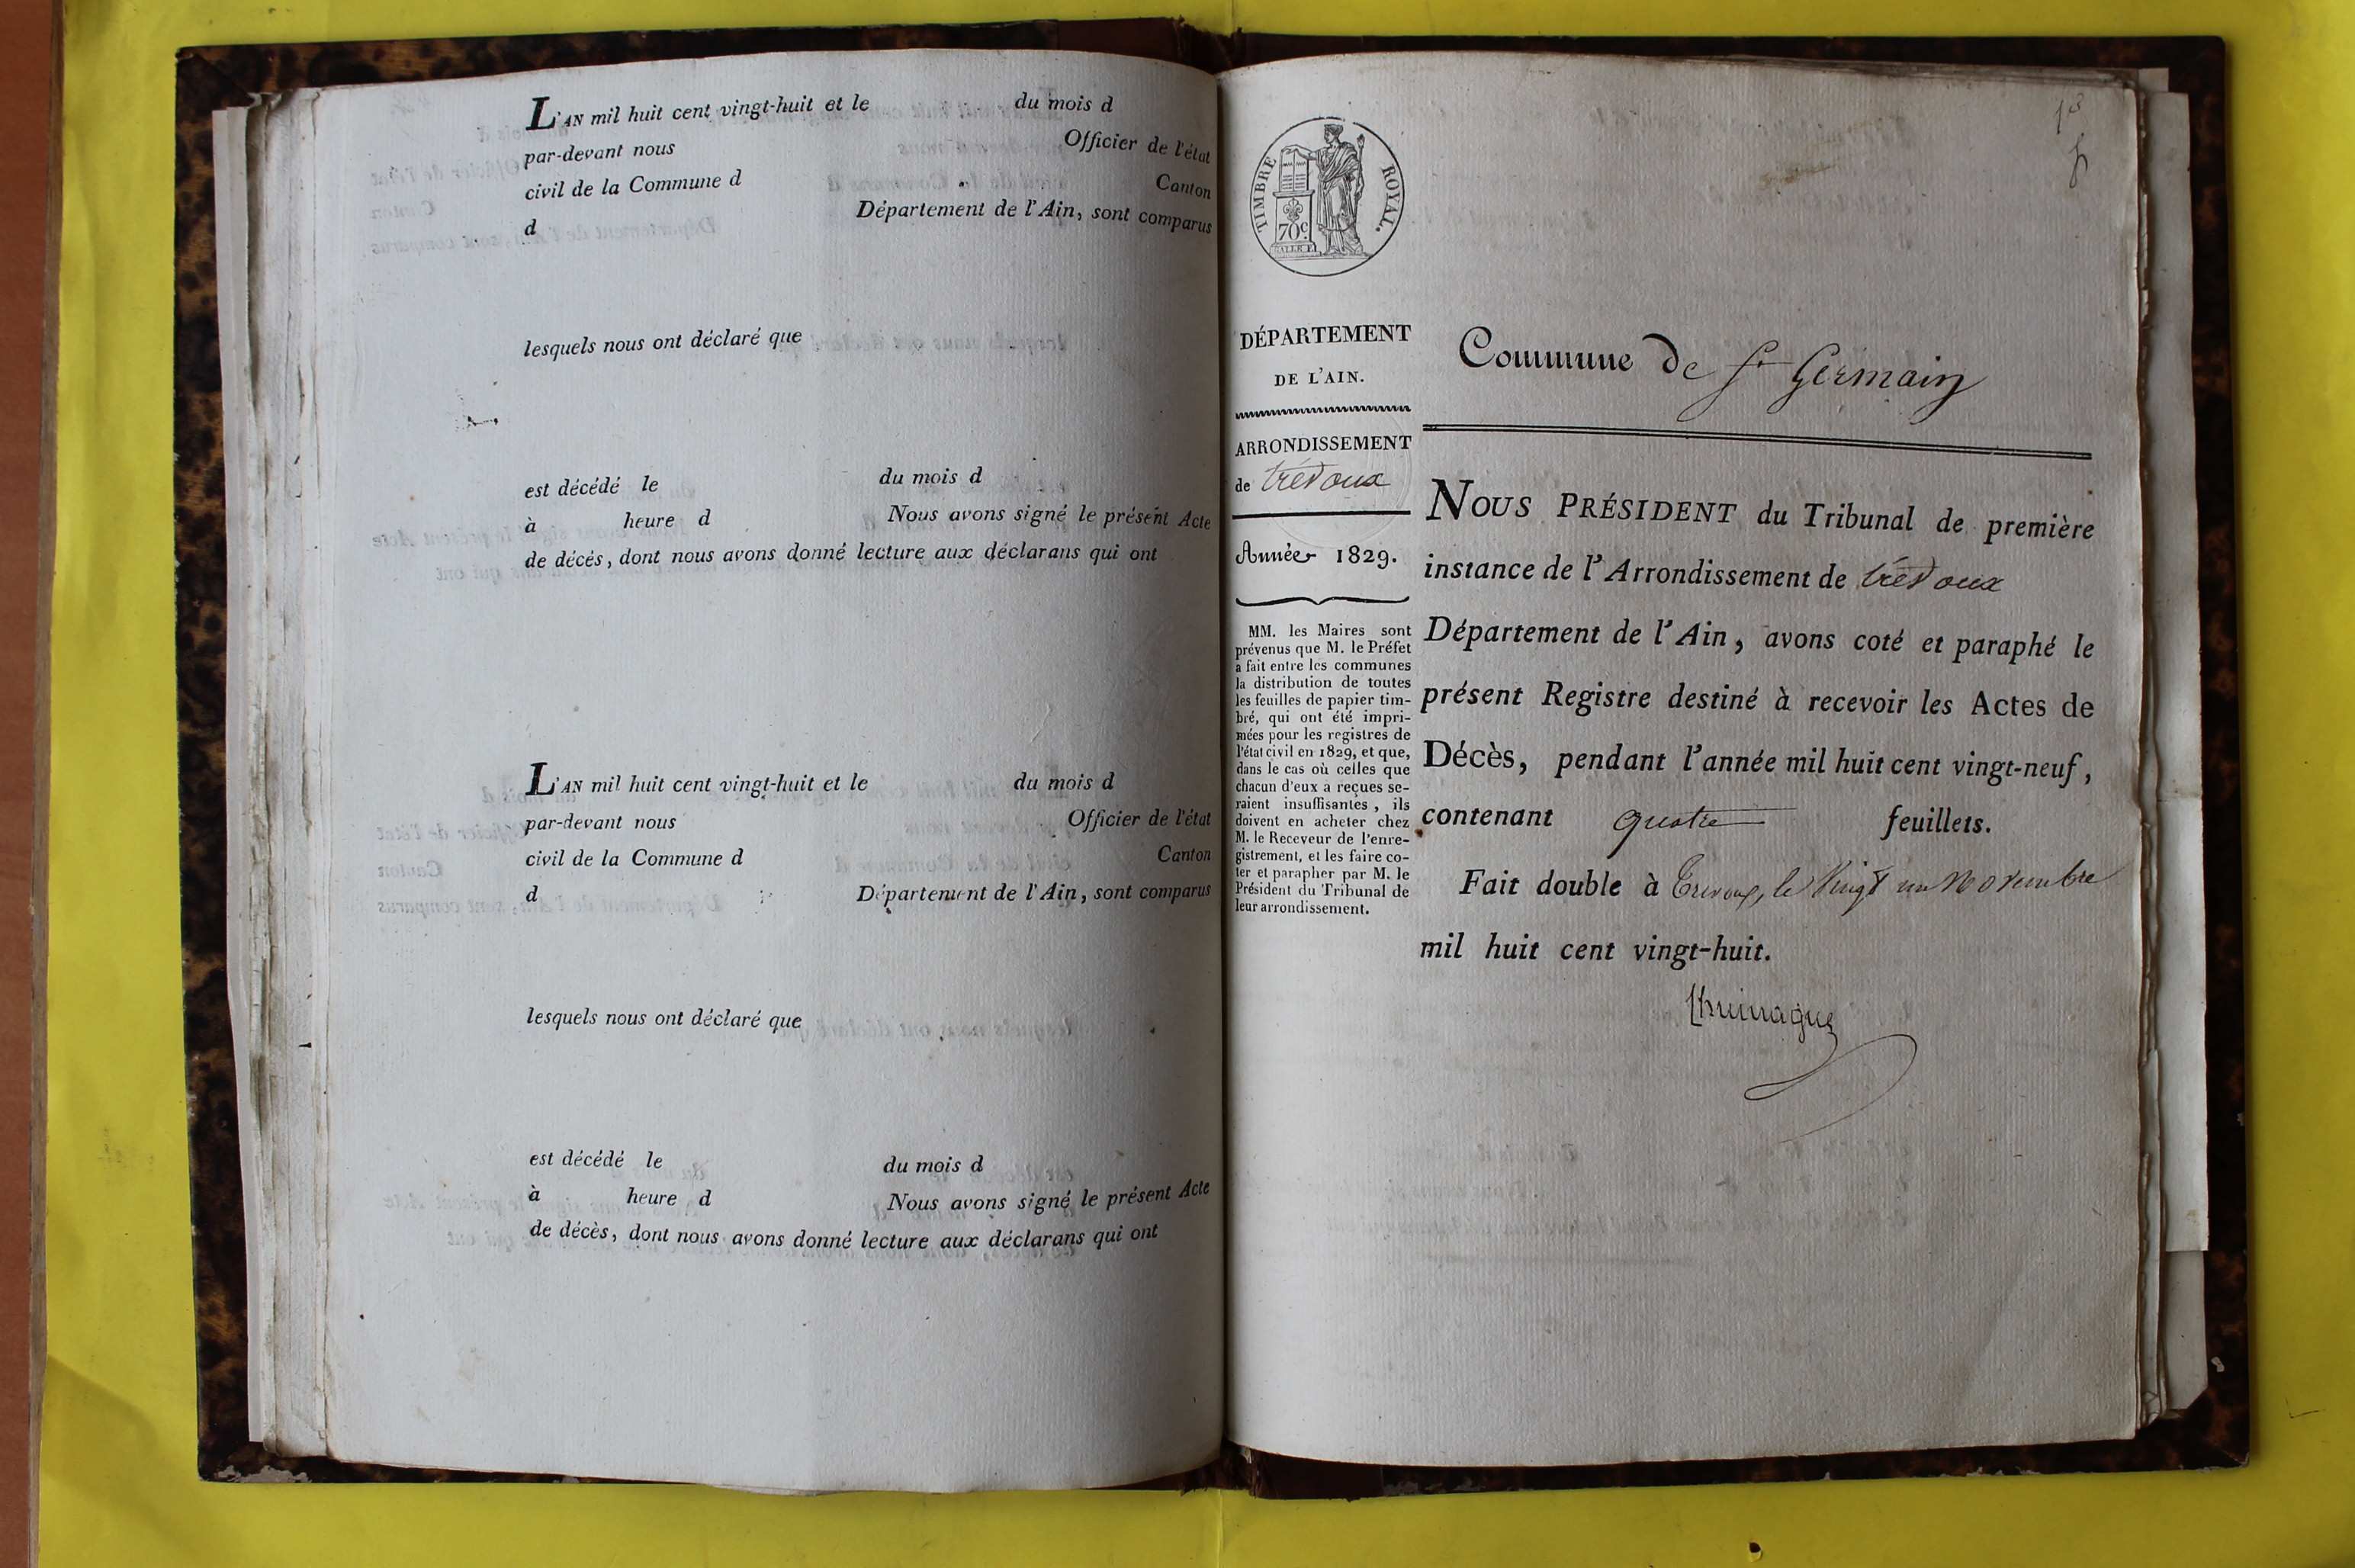 L'AN mil huit cent vingt-huit et le du mois d
par-devant nous Officier de l'état
civil de la Commune d Canton
d Département de l'Ain, sont comparus
lesquels nous ont déclaré que
est décédé le du mois d
à heure d Nous avons signé le présent Acte
de décès, dont nous avons donné lecture aux déclarans qui ont
L'AN mil huit cent vingt-huit et le du mois d
par-devant nous Officier de l'état
civil de la Commune d Canton
d Département de l'Ain, sont comparus
lesquels nous ont déclaré que
est décédé le du mois d
à heure d Nous avons signé le présent Acte
de décès, dont nous avons donné lecture aux déclarans qui ont
TIMBRE ROYAL.
70c
DÉPARTEMENT
DE L'AIN.
ARRONDISSEMENT
de trévoux
Année 1829.
MM. les Maires sont
prévenus que M. le Préfet
a fait entre les communes
la distribution de toutes
les feuilles de papier tim-
bré, qui ont été impri-
mées pour les registres de
l'état civil en 1829, et que,
dans le cas où celles que
chacun d'eux a reçues se-
raient insuffisantes, ils
doivent en acheter chez
M. le Receveur de l'enre-
gistrement, et les faire co-
ter et parapher par M. le
Président du Tribunal de
leur arrondissement.
Commune de St Germain
NOUS PRÉSIDENT du Tribunal de première
instance de l'Arrondissement de trévoux
Département de l'Ain, avons coté et paraphé le
présent Registre destiné à recevoir les Actes de
Décès, pendant l'année mil huit cent vingt-neuf,
contenant quatre feuillets.
Fait double à Trevoux, le Vingt un Novembre
mil huit cent vingt-huit.